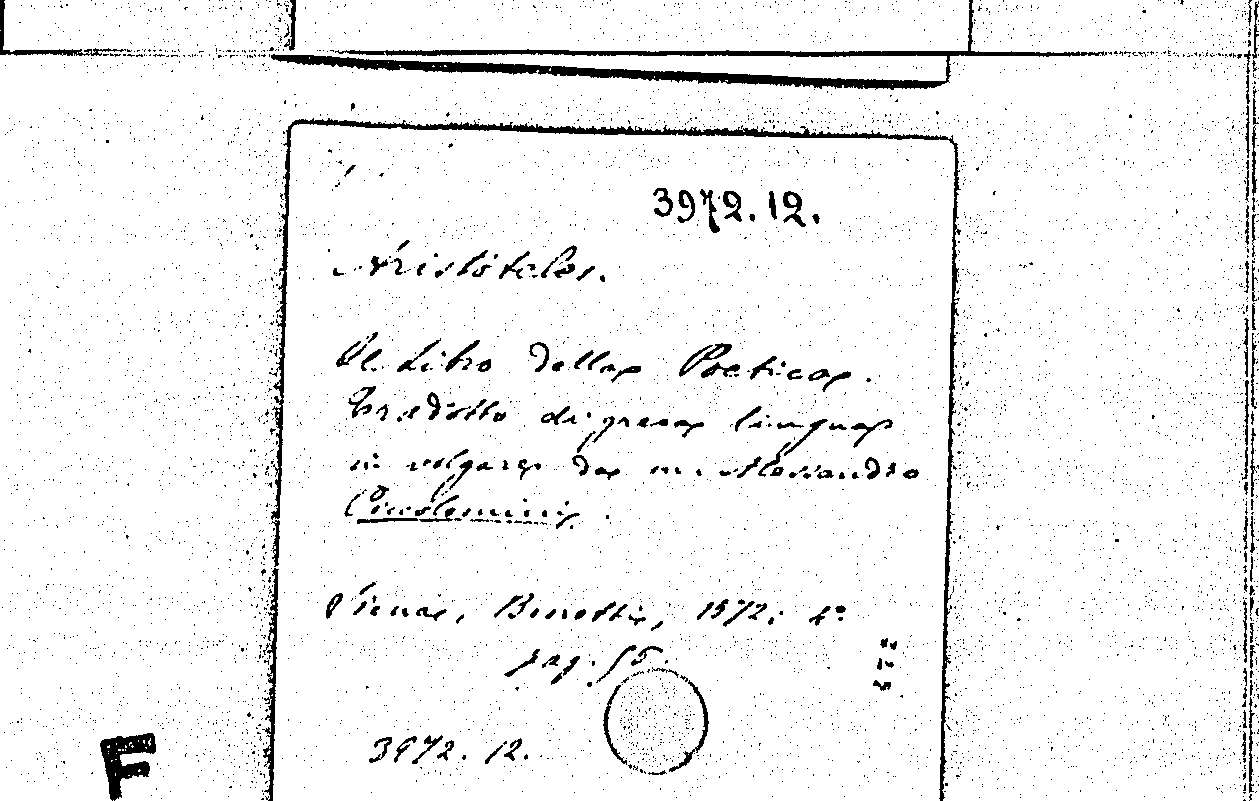 3972.12.
Aristoteles.
Il Libro della Poetica.
Tradotto di greca lingua
in volgare da m. Alessandro
Piccolomini.
Siena, Bonetti, 1572. 4°
pag.
572
3972.12.
F